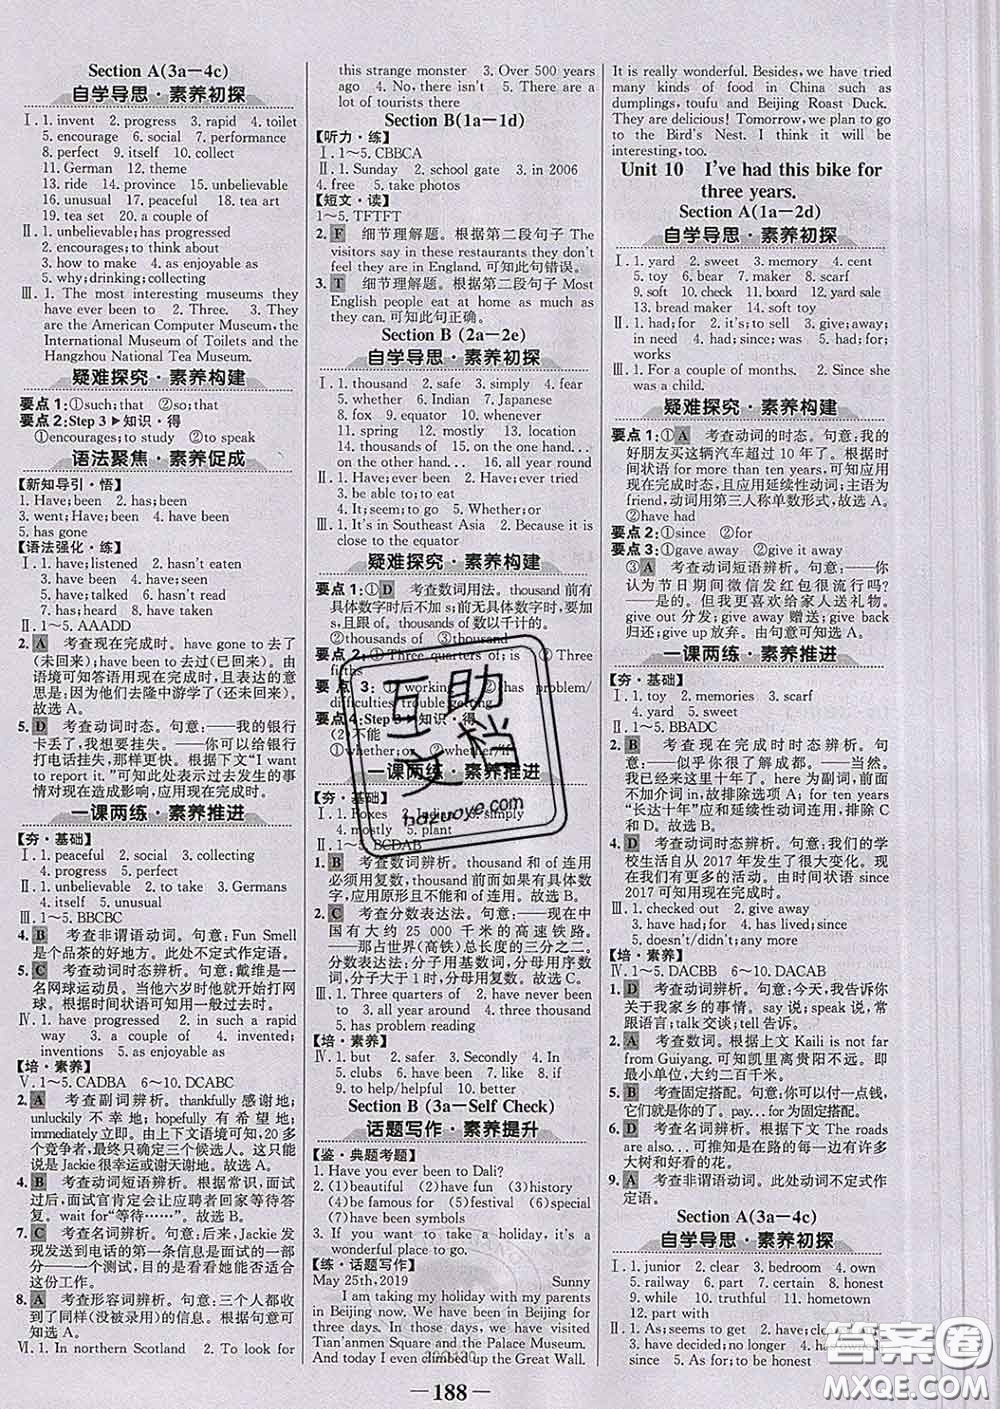 Section A(3a—4c)
自学导思·素养初探
Ⅰ. 1. invent  2. progress  3. rapid  4. toilet
5. encourage  6. social  7. performance
8. perfect  9. itself  10. collect
11. German  12. theme
13. ride  14. province  15. unbelievable
16. unusual  17. peaceful  18. tea art
19. tea set  20. a couple of
Ⅱ. 1. unbelievable; has progressed
2. encourages; to think about
3. how to make  4. as enjoyable as
5. why; drinking; collecting
Ⅲ. 1. The most interesting museums they
have ever been to  2. Three.  3. They
are the American Computer Museum, the
International Museum of Toilets and the
Hangzhou National Tea Museum.
疑难探究·素养构建
要点 1: ①such; that  ②so; that
要点 2: Step 3 ▶知识·得
①encourages; to study  ②to speak
语法聚焦·素养促成
【新知导引·悟】
1. Have; been  2. has; been
3. went; Have; been  4. have been
5. has gone
【语法强化·练】
Ⅰ. 1. have; listened  2. hasn't eaten
3. have been  4. have; seen
5. have; stayed  6. hasn't read
7. has; heard  8. have taken
Ⅱ. 1~5. AAADD
2. A 考查现在完成时。have gone to 去了
(未回来); have been to 去过(已回来)。由
语境可知答语用现在完成时,且表达的意
思是:因为孩子们去隆中游学了(还未回来)。
故选 A。
5. D 考查动词时态。句意:——我的银行
卡丢了,我想要挂失。——你可以给银行
打电话挂失,那样更快些。根据下文“I want
to report it.”可知此处表示过去发生的事
情对现在造成影响,应用现在完成时。
一课两练·素养推进
【夯·基础】
Ⅰ. 1. peaceful  2. social  3. collecting
4. progress  5. perfect
Ⅱ. 1. unbelievable  2. to take  3. Germans
4. itself  5. unusual
Ⅲ. 1~5. BBCBC
4. B 考查非谓语动词。句意:Fun Smell
是个品茶的好地方。此处不定式作定语。
5. C 考查动词时态辨析。句意:戴维是一
名网球运动员。当他六岁时他就开始打网
球。根据时间状语可知用一般过去时。
Ⅳ. 1. have progressed  2. in such a rapid
way  3. a couple of  4. invented;
inventions  5. as enjoyable as
【培·素养】
Ⅴ. 1~5. CADBA  6~10. DCABC
2. A 考查副词辨析。thankfully 感谢地;
unluckily 不幸地; hopefully 有希望地;
immediately 立即。由上下文语境可知,20 多
个竞争者,最终只确定了三个候选人。由
此可知 Jackie 很幸运或谢天谢地。故选 A。
4. B 考查动词短语辨析。根据常识,面试
后,面试官肯定会让应聘者回家等待答复。
wait for“等待……”。故选 B。
7. C 考查名词辨析。句意:后来,Jackie 发
现发送到电话的第一条信息是面试的一部
分——一个测试,目的是看看她能否适合
这份工作。
8. A 考查形容词辨析。句意:三个人都收
到了同样(没被录用)的信息。根据句意可
知选 A。
Ⅵ. 1. In northern Scotland  2. To look for
this strange monster  3. Over 500 years
ago  4. No, there isn't  5. There are a
lot of tourists there
Section B(1a—1d)
【听力·练】
Ⅰ. 1~5. CBBCA
Ⅱ. 1. Sunday  2. school gate  3. in 2006
4. free  5. take photos
【短文·读】
1~5. TFTFT
2. F 细节理解题。根据第二段句子 The
visitors say in these restaurants they don't
feel they are in England. 可知此句错误。
3. T 细节理解题。根据第二段句子 Most
English people eat at home as much as
they can. 可知此句正确。
Section B (2a—2e)
自学导思·素养初探
Ⅰ. 1. thousand  2. safe  3. simply  4. fear
5. whether  6. Indian  7. Japanese
8. fox  9. equator  10. whenever
11. spring  12. mostly  13. location
14. thousands of  15. on the one hand...
on the other hand...  16. all year round
Ⅱ. 1. Have; ever been  2. Have; ever tried
3. be able to; to eat
4. It; seem; to go  5. Whether; or
Ⅲ. 1. It's in Southeast Asia  2. Because it is
close to the equator
疑难探究·素养构建
要点 1: ①D 考查数词用法。thousand 前有
具体数字时后不加 s;前无具体数字时,要加
s,且跟 of。thousands of 数以千计的。
②thousands of  ③thousand
要点 2: ①Three quarters of; is  ②Three
fifths
要点 3: ①working  ②has problem/
difficulties/trouble getting
要点 4: Step 3 ▶知识·得
(2)不能
①whether; or  ②whether/if
一课两练·素养推进
【夯·基础】
Ⅰ. 1. Foxes  2. Indians  3. simply
4. mostly  5. plant
Ⅱ. 1~5. BCDAB
1. B 考查数词辨析。thousand 和 of 连用
必须用复数,thousand 前面如果有具体数字,
应用原形且不能和 of 连用。故选 B。
2. C 考查分数表达法。句意:——现在中
国有大约 25 000 千米的高速铁路。
——那占世界(高铁)总长度的三分之二。
分数表达法:分子用基数词,分母用序数
词,分子大于 1 时,分母用复数。故选 C。
Ⅲ. 1. Three quarters of  2. have never been
to  3. all year around  4. three thousand
5. has problem reading
【培·素养】
Ⅳ. 1. but  2. safer  3. Secondly  4. In
5. clubs  6. have been  7. like  8. if
9. to help/helping  10. more useful
Section B (3a—Self Check)
话题写作·素养提升
【鉴·典题考题】
1. Have you ever been to Dali?
2. (1)beautiful  (2)have fun  (3)history
(4)be famous for  (5)festival  (6)special
(7)have been symbols
3. If you want to take a holiday, it's a
wonderful place to go.
【练·话题写作】
May 25th, 2019  Sunny
I am taking my holiday with my parents in
Beijing now. We have been in Beijing for
three days. In those days, we have visited
Tian'anmen Square and the Palace Museum.
And today I even climbed up the Great Wall.
It is really wonderful. Besides, we have tried
many kinds of food in China such as
dumplings, toufu and Beijing Roast Duck.
They are delicious! Tomorrow, we plan to go
to the Bird's Nest. I think it will be
interesting, too.
Unit 10  I've had this bike for
three years.
Section A(1a—2d)
自学导思·素养初探
Ⅰ. 1. yard  2. sweet  3. memory  4. cent
5. toy  6. bear  7. maker  8. scarf
9. soft  10. check  11. board  12. yard sale
13. bread maker  14. soft toy
Ⅱ. 1. had; for  2. since; was  3. give; away;
in need  4. had; since; was  5. had; for;
works
Ⅲ. 1. For a couple of months.  2. Since she
was a child.
疑难探究·素养构建
要点 1: ①A 考查动词的时态。句意:我的
好朋友买这辆汽车超过 10 年了。根据
时间状语 for more than ten years,可知应用
现在完成时,且应用延续性动词;主语为 my
friend,动词用第三人称单数形式,故选 A。
②have had
要点 2: ①since  ②for
要点 3: ①gave away  ②to give away
③A 考查动词短语辨析。句意:——你
认为节日期间微信发红包很流行吗?
——是的。但我更喜欢给家人送礼物。
give out 分发; give away 赠送; give back
归还; give up 放弃。由句意可知选 A。
一课两练·素养推进
【夯·基础】
Ⅰ. 1. toy  2. memories  3. scarf
4. yard  5. sweet
Ⅱ. 1~5. BBADC
2. B 考查现在完成时时态辨析。句意:
——似乎你很了解成都。——当然。
我已经来这里十年了。here 为副词,前面
不加介词 in,故排除选项 A; for ten years
“长达十年”应和延续性动词连用,排除 C
和 D。故选 B。
4. D 考查动词时态辨析。句意:我们的学
校生活自从 2017 年发生了很大变化。现在
我们有更多的活动。由时间状语 since
2017 可知用现在完成时。
Ⅲ. 1. checked out  2. give away
3. have had; for  4. has lived; since
5. doesn't/didn't; any more
【培·素养】
Ⅳ. 1~5. DACBB  6~10. DACAB
1. D 考查动词辨析。句意:今天,我告诉你
关于我家乡的事情。say 说; speak 讲某种
语言; talk 交谈; tell 告诉。
2. A 考查数词。根据上文 Kaili is not far
from Guiyang. 可知凯里离贵阳不远。即
最小单位,大约二百千米。
5. B 考查固定搭配。句意:你可以付一点钱,
它们就是你的了。pay...for 为固定搭配。
6. D 考查名词辨析。根据下文 The roads
are also... 可推知是在路的一边有许多
大树和好看的花。
9. A 考查非谓语动词。此处动词不定式作
定语。
Section A(3a—4c)
自学导思·素养初探
Ⅰ. 1. junior  2. clear  3. bedroom  4. own
5. railway  6. part  7. certain  8. honest
9. while  10. truthful  11. hometown
12. part with
Ⅱ. 1. As; seem to get  2. clear out
3. have decided; no longer
4. part with  5. As for; to be honest
— 188 —
互助文档
hazuoye.com
答案圈
MXQE.COM